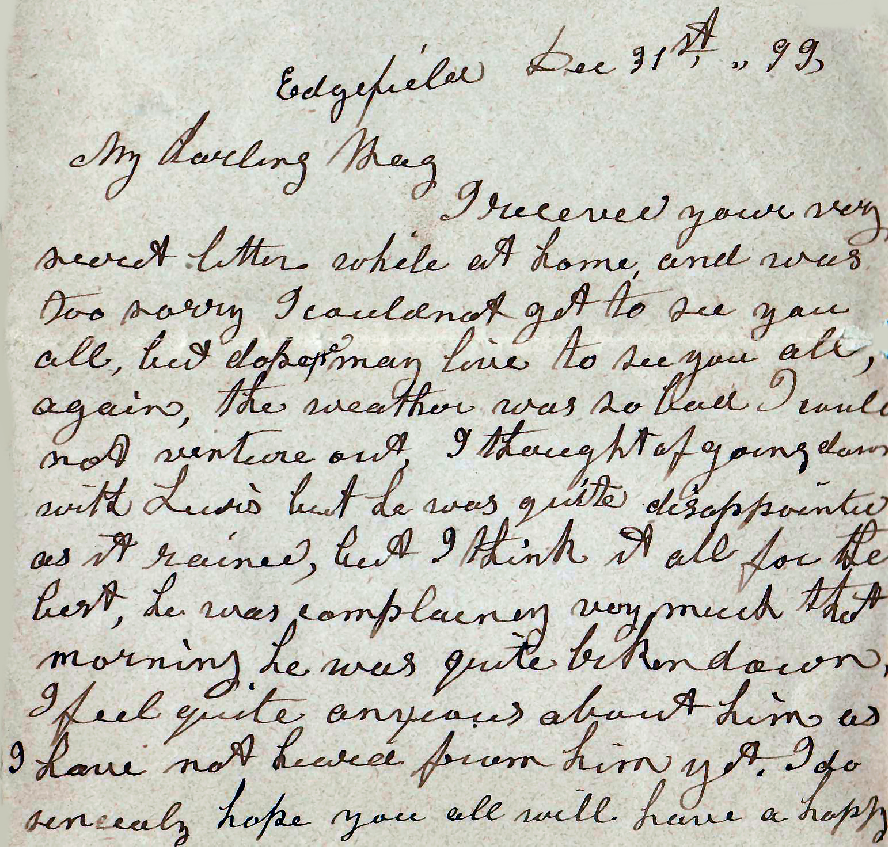 Edgefield Dec 31st, " 99,
My darling Mag
I received your very
sweet letter while at home, and was
too sorry I could not get to see you
all, but do hope I may live to see you all,
again, the weather was so bad I could
not venture out, I thought of going down
with Luvis but he was quite disappointed
as it rained, but I think it all for the
best, he was complaining very much that
morning he was quite broken down,
I feel quite anxious about him as
I have not heard from him yet. I do
sincealy hope you all will have a happy